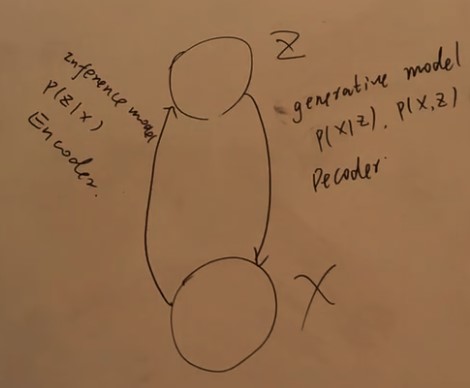 Z
inference model
P(Z|X)
Encoder.
generative model
P(X|Z), P(X,Z)
Decoder.
X